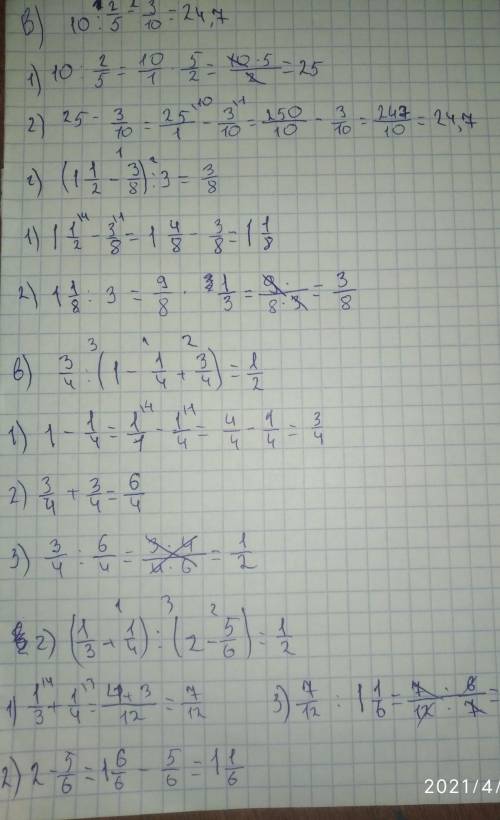 в) 10 : 2/5 - 3/10 = 24,7
1) 10 : 2/5 = 10/1 · 5/2 = 10·5/2 = 25
2) 25 - 3/10 = 25/1 - 3/10 = 250/10 - 3/10 = 247/10 = 24,7
г) (1 1/2 - 3/8) : 3 = 3/8
1) 1 1/2 - 3/8 = 1 4/8 - 3/8 = 1 1/8
2) 1 1/8 : 3 = 9/8 · 1/3 = 9·/8·3 = 3/8
в) 3/4 : (1 - 1/4 + 3/4) = 1/2
1) 1 - 1/4 = 1/1 - 1/4 = 4/4 - 1/4 = 3/4
2) 3/4 + 3/4 = 6/4
3) 3/4 : 6/4 = 3·4/4·6 = 1/2
г) (1/3 + 1/4) : (2 - 5/6) = 1/2
1) 1/3 + 1/4 = 4+3/12 = 7/12 3) 7/12 : 1 1/6 = 7·6/12·7 =
2) 2 - 5/6 = 1 6/6 - 5/6 = 1 1/6
2021/4/